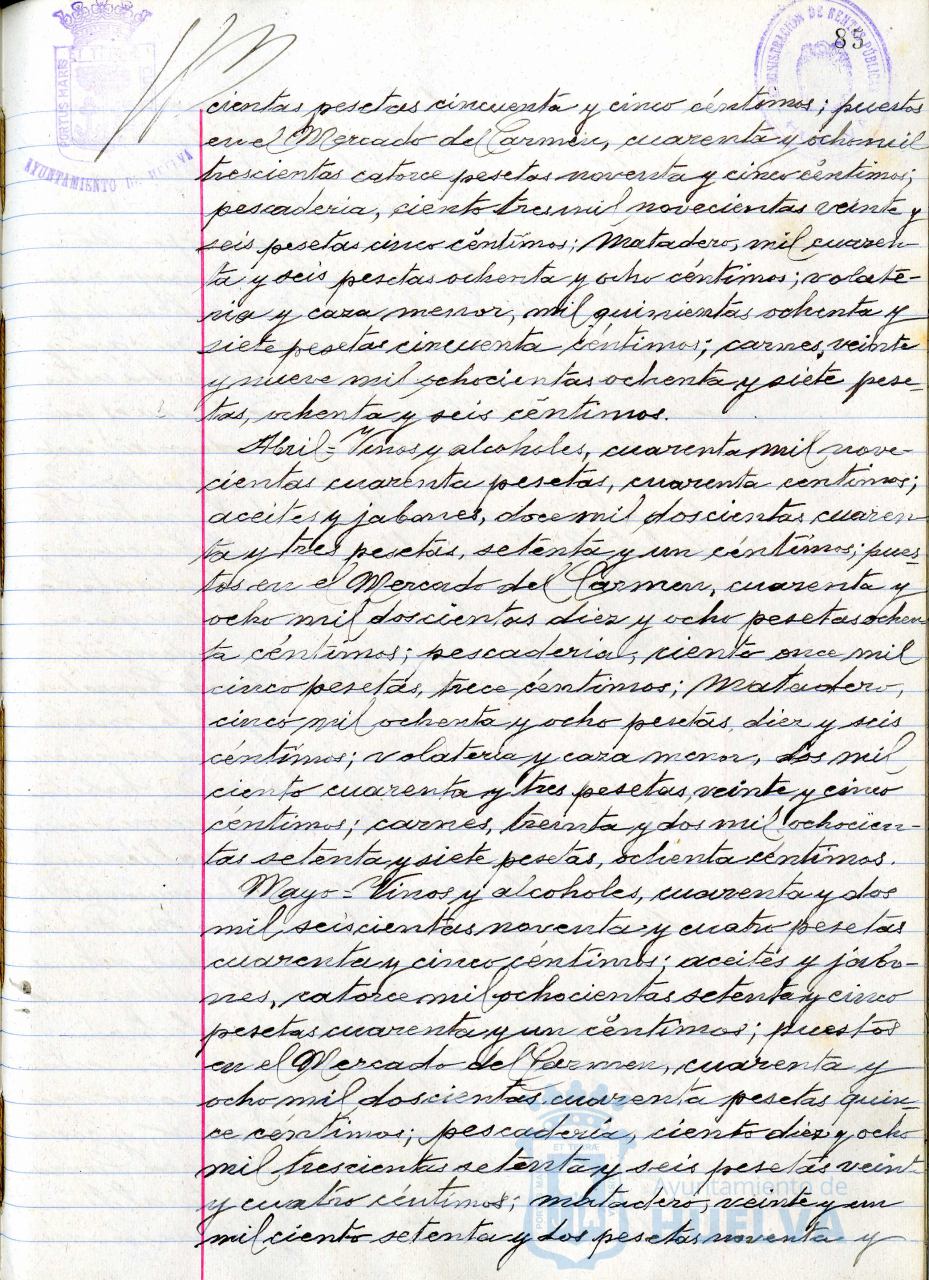 85
PORTUS MARIS
AYUNTAMIENTO DE HUELVA
ADMINISTRACION DE RENTAS PUBLICAS
cientas pesetas cincuenta y cinco céntimos; puestos
en el Mercado del Carmen, cuarenta y ocho mil
trescientas catorce pesetas noventa y cinco céntimos;
pescaderia, ciento tres mil novecientas veinte y
seis pesetas cinco céntimos; Matadero, mil cuaren-
ta y seis pesetas ochenta y ocho céntimos; volate-
ria y caza menor, mil quinientas ochenta y
siete pesetas cincuenta céntimos; carnes, veinte
y nueve mil ochocientas ochenta y siete pese-
tas, ochenta y seis céntimos.
Abril = Vinos y alcoholes, cuarenta mil nove-
cientas cuarenta pesetas, cuarenta centimos;
aceites y jabones, doce mil doscientas cuaren-
ta y tres pesetas, setenta y un céntimos; pues-
tos en el Mercado del Carmen, cuarenta y
ocho mil doscientas diez y ocho pesetas ochen-
ta céntimos; pescaderia, ciento once mil
cinco pesetas, trece céntimos; Matadero,
cinco mil ochenta y ocho pesetas, diez y seis
céntimos; volateria y caza menor, dos mil
ciento cuarenta y tres pesetas, veinte y cinco
céntimos; carnes, treinta y dos mil ochocien-
tas setenta y siete pesetas, ochenta céntimos.
Mayo = Vinos y alcoholes, cuarenta y dos
mil seiscientas noventa y cuatro pesetas
cuarenta y cinco céntimos; aceites y jabo-
nes, catorce mil ochocientas setenta y cinco
pesetas cuarenta y un céntimos; puestos
en el Mercado del Carmen, cuarenta y
ocho mil doscientas cuarenta pesetas quin-
ce céntimos; pescadería, ciento diez y ocho
mil trescientas setenta y seis pesetas veinte
y cuatro céntimos; matadero, veinte y un
mil ciento setenta y dos pesetas noventa y
Ayuntamiento de
HUELVA